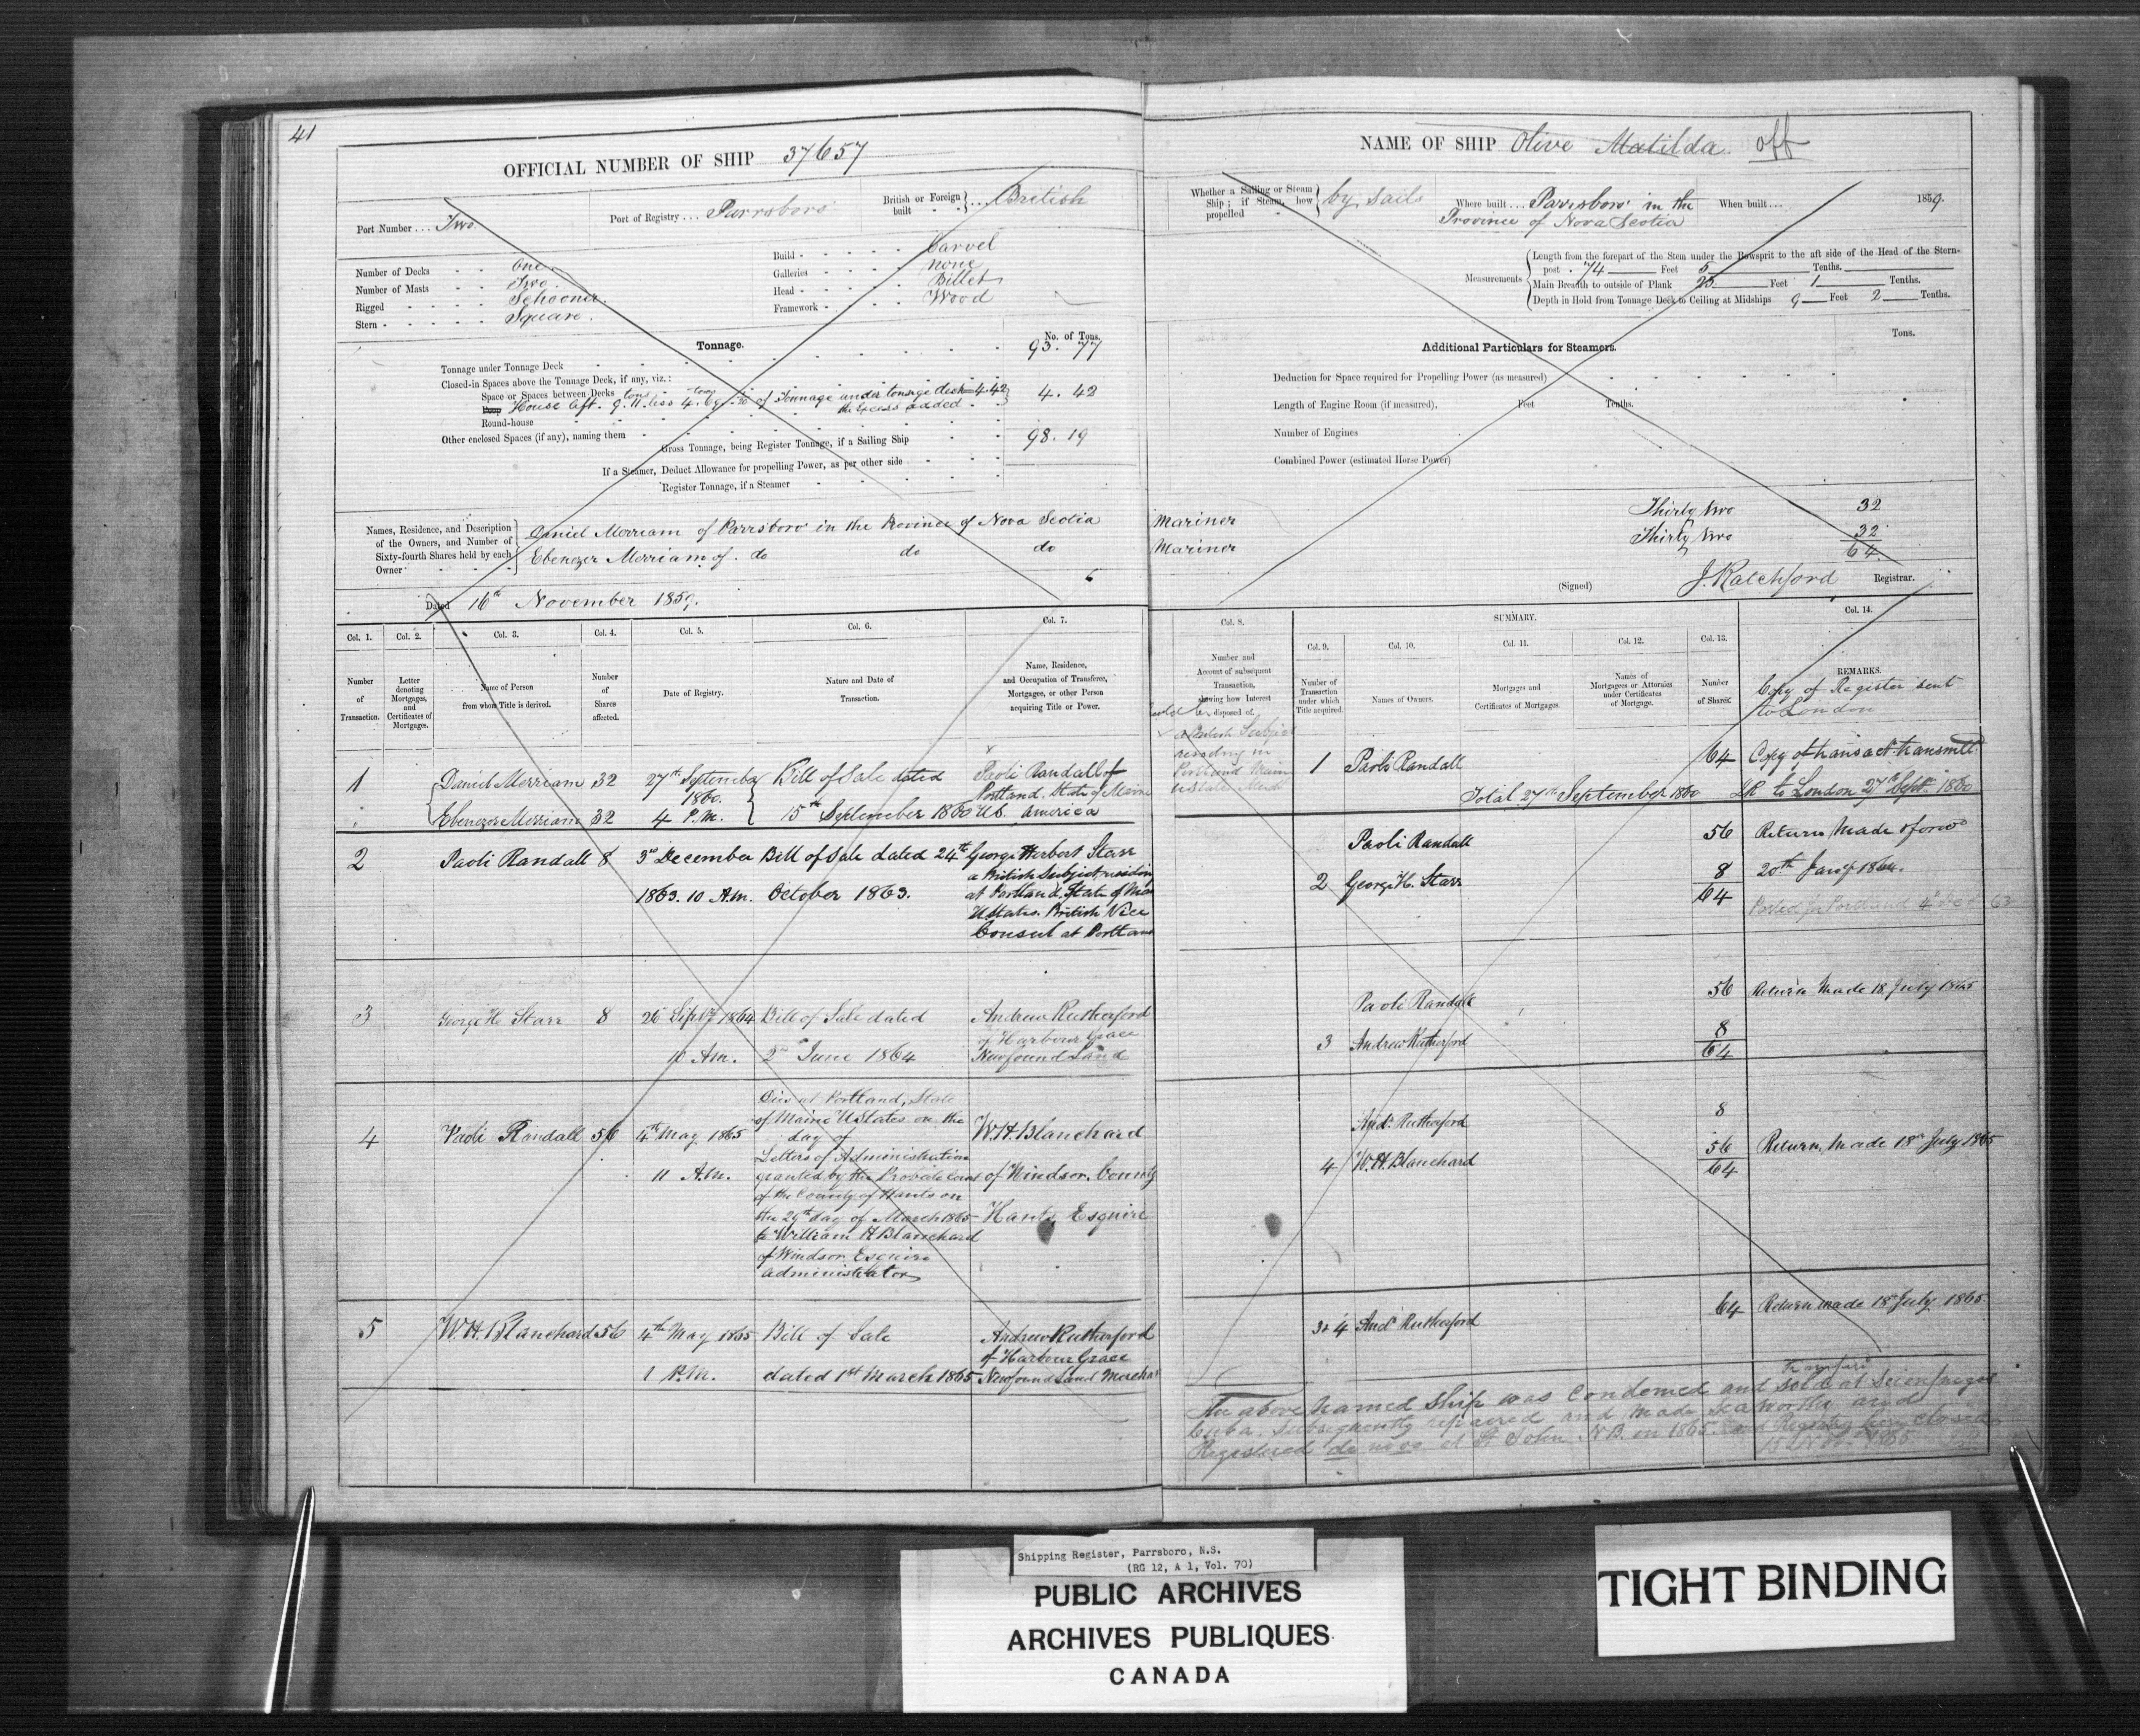 41
OFFICIAL NUMBER OF SHIP 37657
Port Number ... Two.
Port of Registry ... Parrsboro
British or Foreign built } ... British
Number of Decks One
Number of Masts Two.
Rigged Schooner.
Stern Square.
Build Carvel
Galleries none
Head Billet
Framework Wood
Tonnage.
No. of Tons.
Tonnage under Tonnage Deck 93.77
Closed-in Spaces above the Tonnage Deck, if any, viz.:
Space or Spaces between Decks
Poop House Aft. 9.11 tons less 4.69 tons of Tonnage under tonnage deck 4.42 } 4.42
the Excess added
Round-house
Other enclosed Spaces (if any), naming them
Gross Tonnage, being Register Tonnage, if a Sailing Ship 98.19
If a Steamer, Deduct Allowance for propelling Power, as per other side
Register Tonnage, if a Steamer
Names, Residence, and Description of the Owners, and Number of Sixty-fourth Shares held by each Owner
Daniel Merriam of Parrsboro in the Province of Nova Scotia
Ebenezer Merriam of do do do
Dated 16th November 1859.
Col. 1. Col. 2. Col. 3. Col. 4. Col. 5. Col. 6. Col. 7.
Number of Transaction.
Letter denoting Mortgages, and Certificates of Mortgages.
Name of Person from whom Title is derived.
Number of Shares affected.
Date of Registry.
Nature and Date of Transaction.
Name, Residence, and Occupation of Transferee, Mortgagee, or other Person acquiring Title or Power.
1 Daniel Merriam 32 27th September Bill of Sale dated Paoli Randall of
1860. Portland. State of Maine
Ebenezer Merriam 32 4 P.M. 15th September 1860 U.S. America
2 Paoli Randall 8 3rd December Bill of Sale dated 24th George Herbert Starr
a British Subject residing
1863. 10 A.M. October 1863. at Portland, State of Maine
U States. British Vice
Consul at Portland
3 George H. Starr 8 26 Septr 1864 Bill of Sale dated Andrew Rutherford
of Harbour Grace
10 A.M. 2nd June 1864 Newfoundland
4 Paoli Randall 56 4th May 1865 11 A.M.
Died at Portland, State
of Maine U States on the
day of
Letters of Administration
granted by the Probate Court
of the County of Hants on
the 29th day of March 1865
to William H Blanchard
of Windsor, Esquire
administrator
W.H. Blanchard
of Windsor, County
Hants, Esquire
5 W.H. Blanchard 56 4th May 1865 Bill of Sale Andrew Rutherford
of Harbour Grace
1 P.M. dated 1st March 1865 Newfoundland Merchant
NAME OF SHIP Olive Matilda off
Whether a Sailing or Steam Ship; if Steam, how propelled } by Sails
Where built ... Parrsboro' in the
Province of Nova Scotia
When built ... 1859.
Measurements
Length from the forepart of the Stem under the Bowsprit to the aft side of the Head of the Stern-
post 74 Feet 5 Tenths.
Main Breadth to outside of Plank Feet 1 Tenths.
Depth in Hold from Tonnage Deck to Ceiling at Midships 9 Feet 2 Tenths.
Additional Particulars for Steamers.
Tons.
Deduction for Space required for Propelling Power (as measured)
Length of Engine Room (if measured), Feet Tenths.
Number of Engines
Combined Power (estimated Horse Power)
Mariner Thirty two 32
Mariner Thirty two 32
64
(Signed) J. Ratchford Registrar.
SUMMARY.
Col. 8. Col. 9. Col. 10. Col. 11. Col. 12. Col. 13. Col. 14.
Number and Account of subsequent Transaction, showing how Interest disposed of.
Number of Transaction under which Title acquired.
Names of Owners.
Mortgages and Certificates of Mortgages.
Names of Mortgagees or Attornies under Certificates of Mortgage.
Number of Shares.
REMARKS.
Copy of Register sent
to London
a British Subject
residing in
Portland Maine
U State
1 Paoli Randall 64 Copy of transact. transmitt.
Total 27th September 1860 to London 27th Sept. 1860
Paoli Randall 56 Return Made & forwd
2 George H. Starr 8 20th Jany 1864.
64 Posted for Portland 4 Dec 63
Paoli Randall 56 Return Made 18 July 1865
3 Andrew Rutherford 8
64
Andw Rutherford 8
4 W.H. Blanchard 56 Return, Made 18 July 1865
64
3 & 4 Andw Rutherford 64 Return made 18 July 1865.
The above named Ship was Condemed and sold at
Cuba. Subsequently repaired and made Seaworthy and
Registered de novo at St John N.B. in 1865. and Registry here closed
15 Novr 1865
Shipping Register, Parrsboro, N.S.
(RG 12, A 1, Vol. 70)
PUBLIC ARCHIVES
ARCHIVES PUBLIQUES
CANADA
TIGHT BINDING